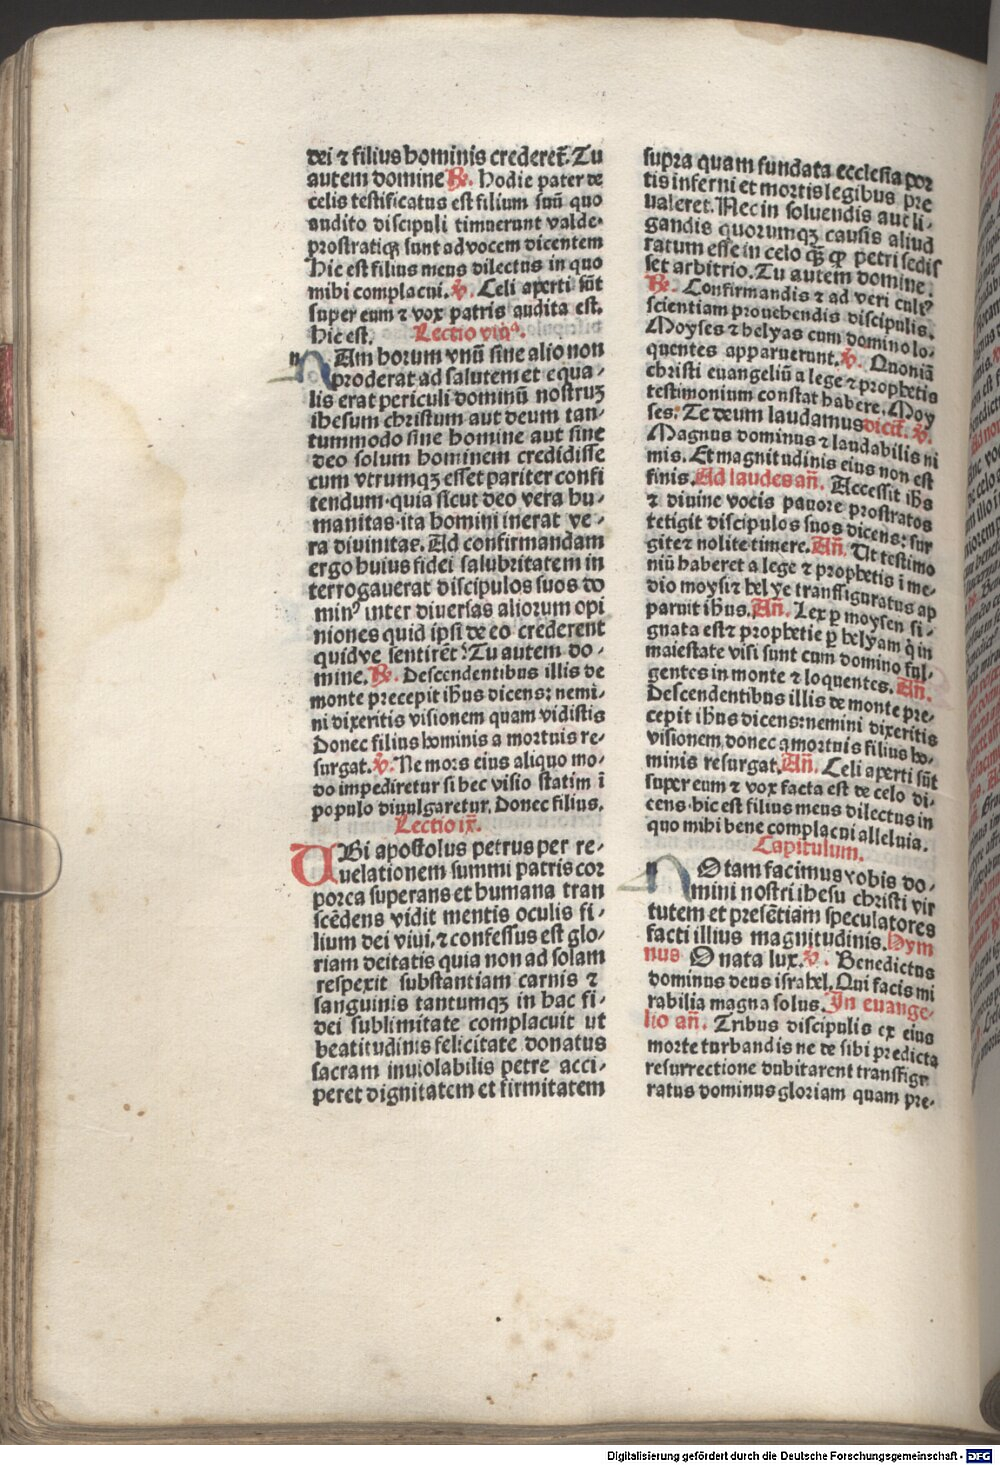 dei ⁊ filius hominis crederet᷑. Tu
autem domine ℟. Hodie pater de
celis testificatus est filium suū quo
audito discipuli timuerunt valde·
prostratiqꝫ sunt ad vocem dicentem
Hic est filius meus dilectus in quo
mihi complacui. ℣. Celi aperti sūt
super eum ⁊ vox patris audita est.
Hic est. Lectio viijᵃ.
n NAm horum vnū sine alio non
proderat ad salutem et equa/
lis erat periculi dominū nostruꝫ
ihesum christum aut deum tan/
tummodo sine homine aut sine
deo solum hominem credidisse
cum vtrumqꝫ esset pariter confi
tendum·quia sicut deo vera hu/
manitas·ita homini inerat ve/
ra diuinitas. Ad confirmandam
ergo huius fidei salubritatem in
terrogauerat discipulos suos do
minꝰ inter diuersas aliorum opi
niones quid ipsi de eo crederent
quidve sentirēt? Tu autem do/
mine. ℟. Descendentibus illis de
monte precepit ihūs dicens: nemi/
ni dixeritis visionem quam vidistis
Donec filius hominis a mortuis re/
surgat. ℣. Ne mors eius aliquo mo/
do impediretur si hec visio statim ī
populo diuulgaretur. Donec filius.
Lectio ix̄.
UBi apostolus petrus per re/
uelationem summi patris cor
porea superans et humana tran
scēdens vidit mentis oculis fi/
lium dei viui.⁊ confessus est glo/
riam deitatis quia non ad solam
respexit substantiam carnis ⁊
sanguinis tantumqꝫ in hac fi/
dei sublimitate complacuit ut
beatitudinis felicitate donatus
sacram inuiolabilis petre acci/
peret dignitatem et firmitatem
supra quam fundata ecclesia por
tis inferni et mortis legibus pre
ualeret. Nec in soluendis aut li/
gandis quorumqꝫ causis aliud
ratum esse in celo qᷓꝫ ꝙ petri sedis
set arbitrio. Tu autem domine.
℟. Confirmandis ⁊ ad veri cultꝰ
scientiam prouehendis discipulis.
Moyses ⁊ helyas cum domino lo/
quentes apparuerunt. ℣. Quoniā
christi euangeliū a lege ⁊ prophetis
testimonium constat habere. Moy
ses. Te deum laudamus dicit᷑. ℣.
Magnus dominus ⁊ laudabilis ni
mis. Et magnitudinis eius non est
finis. Ad laudes an̄. Accessit ihūs
⁊ diuine vocis pauore prostratos
tetigit discipulos suos dicens: sur
gite⁊ nolite timere. An̄. Ut testimo
niū haberet a lege ⁊ prophetis ī me/
dio moysi⁊ helye transfiguratus ap
paruit ihūs. An̄. Lex ꝑ moysen si/
gnata est⁊ prophetie ꝑ helyam q̇ in
maiestate visi sunt cum domino ful/
gentes in monte ⁊ loquentes. An̄.
Descendentibus illis de monte pre/
cepit ihūs dicens:nemini dixeritis
visionem donec a mortuis filius ho/
minis resurgat. An̄. Celi aperti sūt
super eum ⁊ vox facta est de celo di/
cens·hic est filius meus dilectus in
quo mihi bene complacui alleluia.
Capitulum.
n NOtam facimus vobis do/
mini nostri ihesu christi vir
tutem et presētiam speculatores
facti illius magnitudinis. Hym
nus O nata lux. ℣. Benedictus
dominus deus israhel. Qui facis mi
rabilia magna solus. In euange/
lio an̄. Tribus discipulis ex eius
morte turbandis ne de sibi predicta
resurrectione dubitarent transfigu
ratus dominus gloriam quam pre/
Digitalisierung gefördert durch die Deutsche Forschungsgemeinschaft - DFG